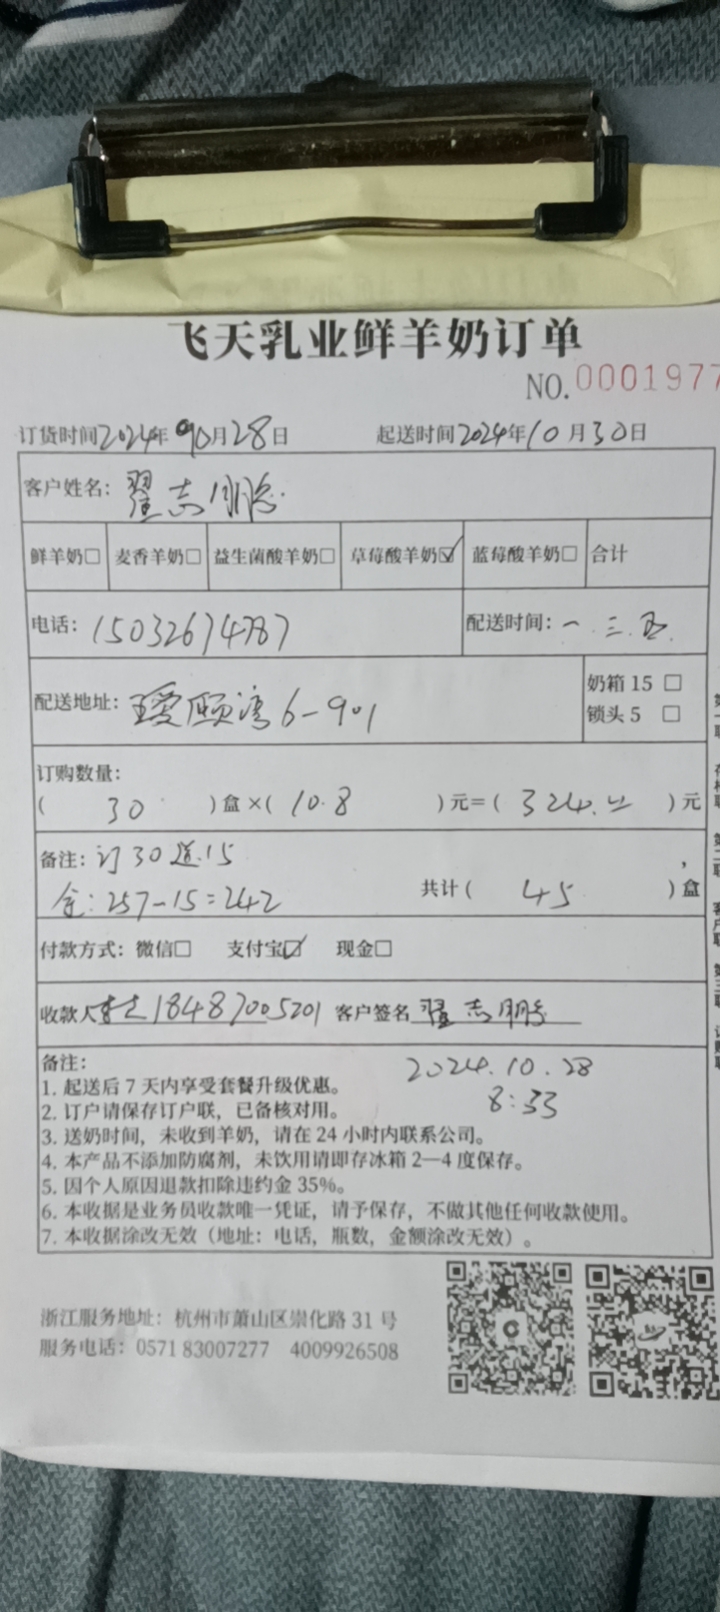 飞天乳业鲜羊奶订单
NO.0001977
订货时间2024年10月28日 起送时间2024年10月30日
客户姓名：翟志鹏
鲜羊奶□ 麦香羊奶□ 益生菌酸羊奶□ 草莓酸羊奶☑ 蓝莓酸羊奶□ 合计
电话：15032674787 配送时间：一.三.五
配送地址：瑷颐湾6-901
奶箱 15 □
锁头 5 □
订购数量：
( 30 )盒×( 10.8 )元=( 324.- )元
备注：订30送15
金：257-15=242 共计( 45 )盒
付款方式：微信□ 支付宝☑ 现金□
收款人 18487005201 客户签名 翟志鹏
备注： 2024.10.28
8:33
1. 起送后 7 天内享受套餐升级优惠。
2. 订户请保存订户联，已备核对用。
3. 送奶时间，未收到羊奶，请在 24 小时内联系公司。
4. 本产品不添加防腐剂，未饮用请即存冰箱 2—4 度保存。
5. 因个人原因退款扣除违约金 35%。
6. 本收据是业务员收款唯一凭证，请予保存，不做其他任何收款使用。
7. 本收据涂改无效（地址：电话，瓶数，金额涂改无效）。
浙江服务地址：杭州市萧山区崇化路 31 号
服务电话：0571 83007277 4009926508